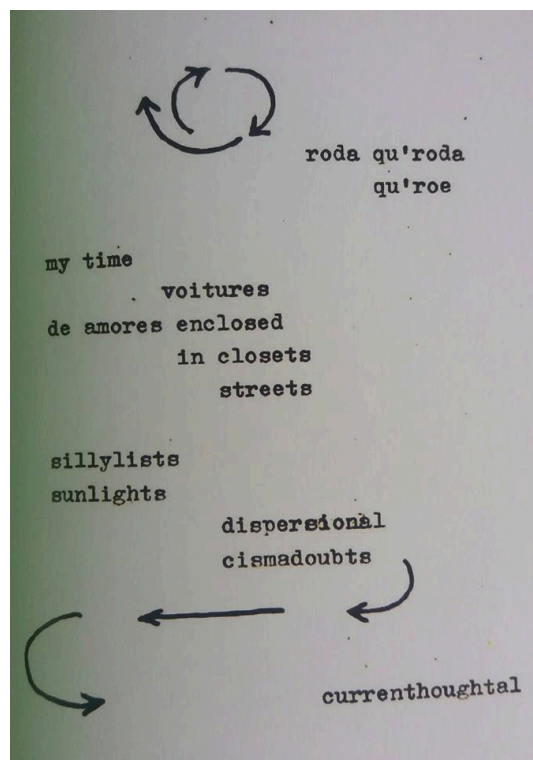 roda qu'roda
qu'roe
my time
voitures
de amores enclosed
in closets
streets
sillylists
sunlights
dispersional
cismadoubts
currenthoughtal